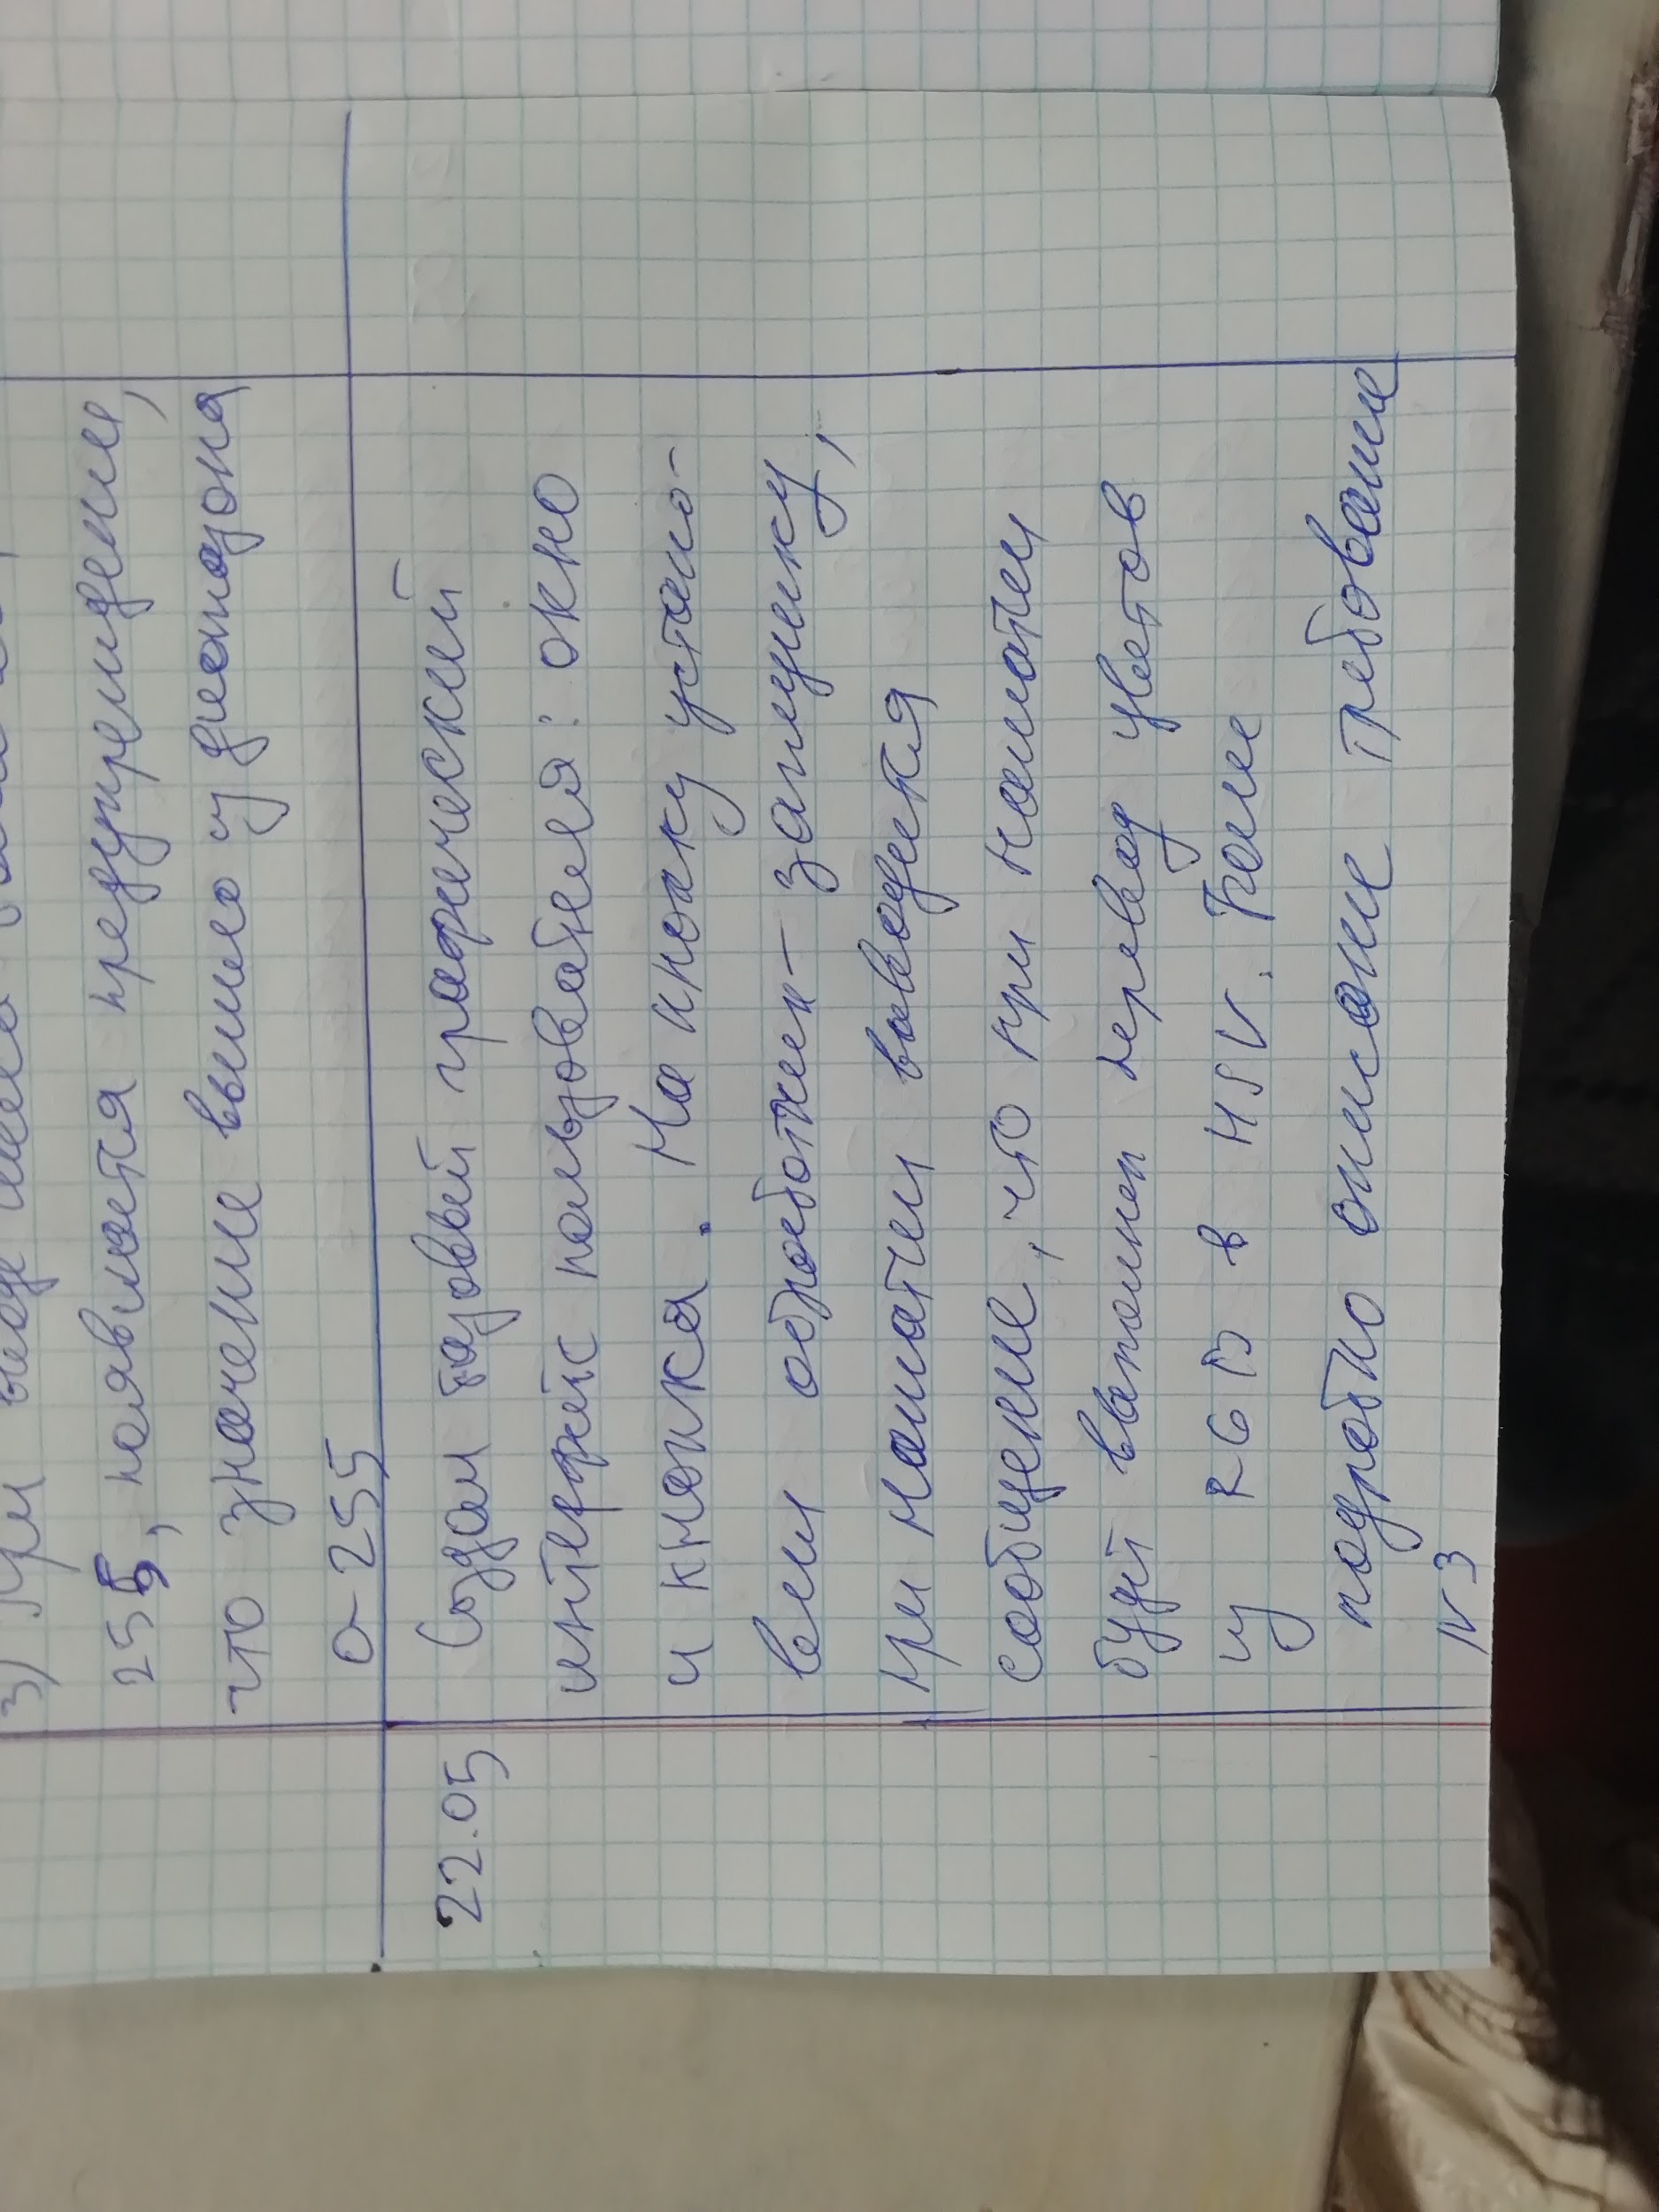 3) При вводе числа
255, появляется предупреждение,
что значение вышло из диапазона
0-255
22.05
Создал базовый графический
интерфейс пользователя: окно
и кнопка. На кнопку устано-
вил обработчик-заглушку,
при нажатии выводится
сообщение, что при нажатии
будет выполнен перевод цветов
из RGB в HSV. Более
подробно описание требование
№3